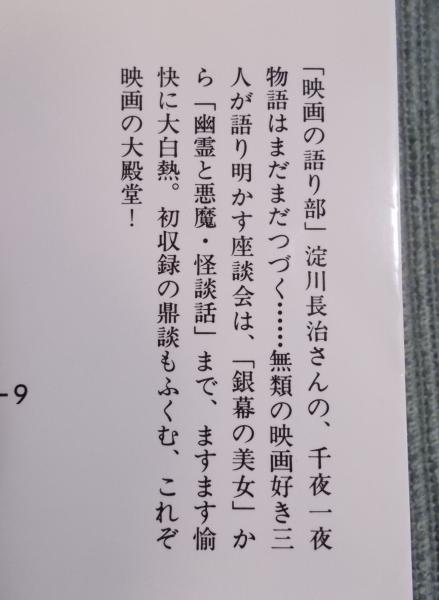 「映画の語り部」淀川長治さんの、千夜一夜
物語はまだまだつづく……無類の映画好き三
人が語り明かす座談会は、「銀幕の美女」か
ら「幽霊と悪魔・怪談話」まで、ますます愉
快に大白熱。初収録の鼎談もふくむ、これぞ
映画の大殿堂！
-9